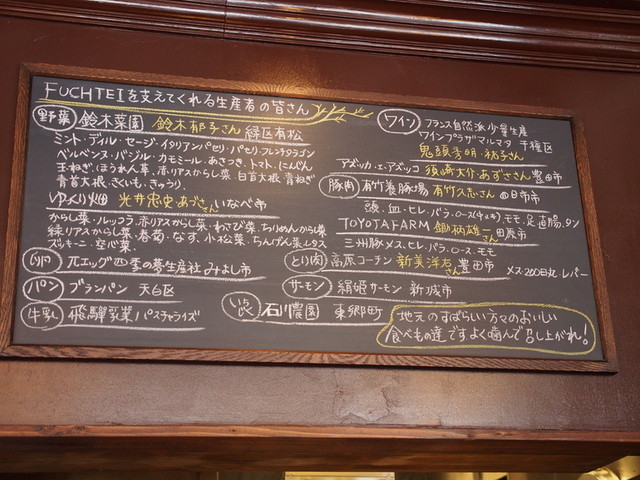 FUCHTEIを支えてくれる生産者の皆さん
野菜 鈴木菜園 鈴木郁子さん 緑区有松
ミント・ディル・セージ・イタリアンパセリ・パセリ・フレンチタラゴン
ベルベンヌ・バジル・カモミール・あさつき・トマト・にんじん
玉ねぎ・ほうれん草・赤リアスからし菜・白首大根・青ねぎ
青首大根・さくいも・きゅうり
ゆっくり畑 光井忠史 あづさ いなべ市
からし菜・ルッコラ・赤リアスからし菜・わさび菜・ちりめんからし菜
緑リアスからし菜・春菊・なす・小松菜・ちんげん菜・レタス
ズッキーニ・空心菜
卵 エッグ四季の夢生産社 みよし市
パン ブランパン 天白区
牛乳 飛騨乳業 パスチャライズ
いちじく 石川農園 東郷町
ワイン フランス自然派少量生産
ワインプラザマルマタ 千種区
鬼頭秀明・祐子さん
アズッカ・エ・アズッコ 須崎大介・あずささん 豊田市
豚肉 有竹養豚場 有竹久志さん 四日市市
頭・血・ヒレ・バラ・ロース モモ・足・直腸・タン
TOYOTAFARM 鋤柄雄一さん 田原市
三州豚メス、ヒレ・バラ・ロース・モモ
とり肉 高原コーチン 新美洋右さん 豊田市
メス・260日丸・レバー
サーモン 絹姫サーモン 新城市
地元のすばらしい方々のおいしい
食べもの達ですよく噛んで召し上がれ!